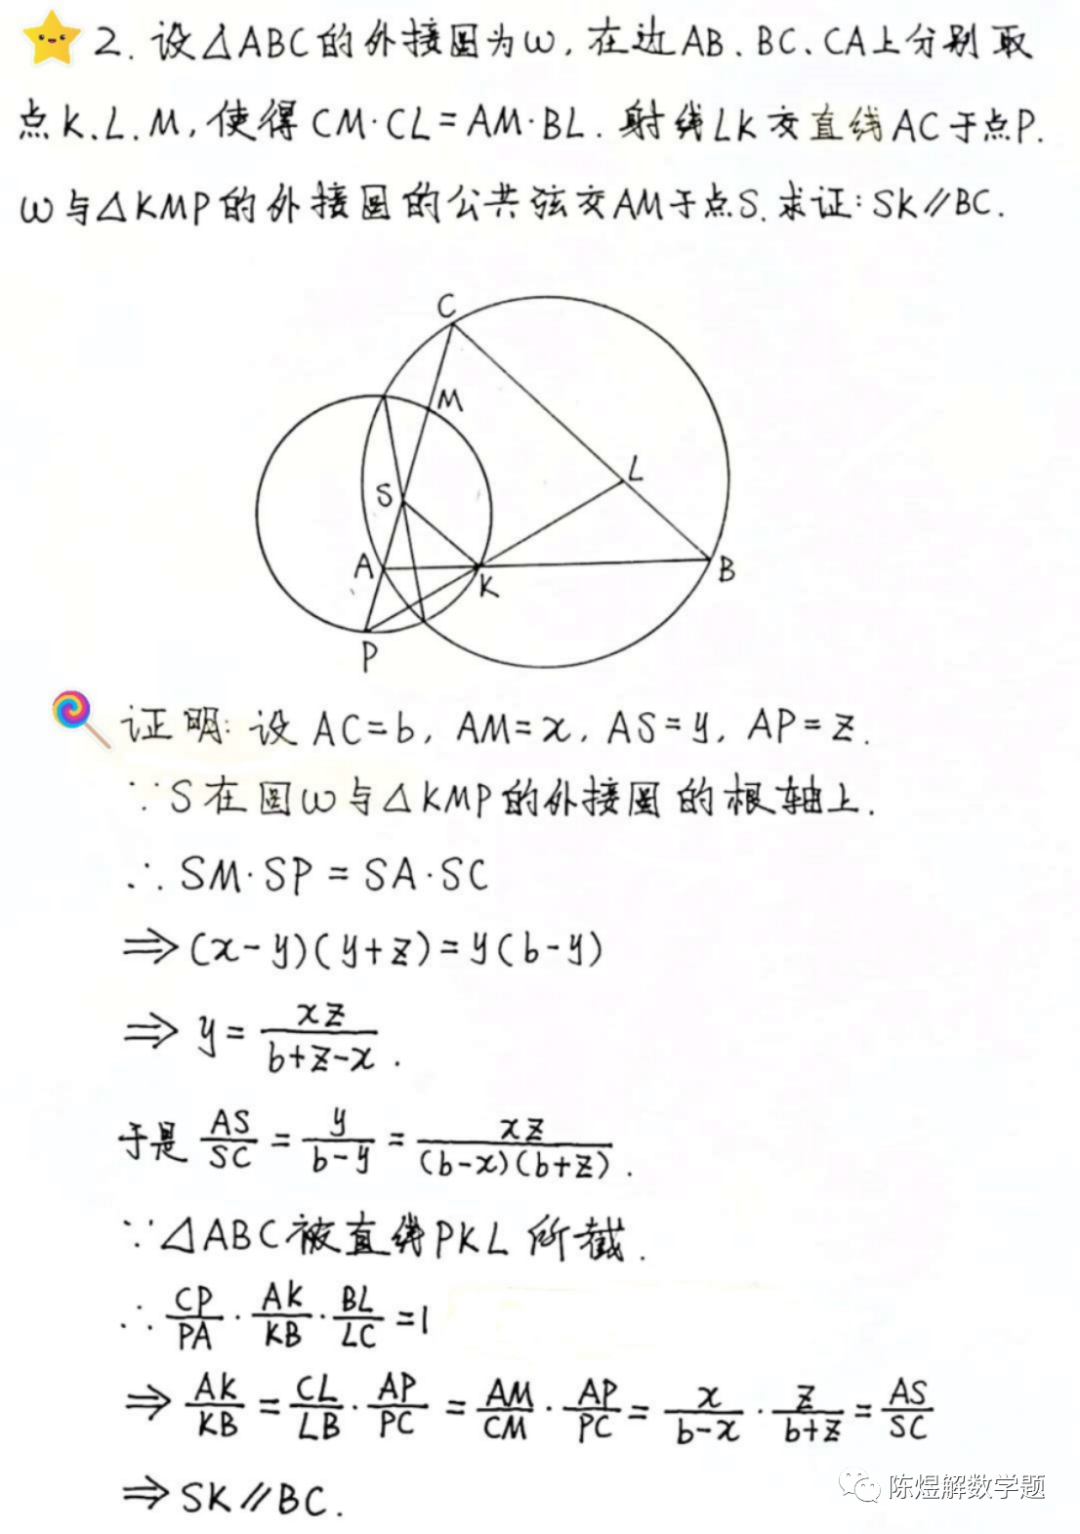 2. 设△ABC的外接圆为ω, 在边AB、BC、CA上分别取
点K、L、M, 使得CM·CL=AM·BL. 射线LK交直线AC于点P.
ω与△KMP的外接圆的公共弦交AM于点S. 求证: SK∥BC.
C
M
L
S
A
K
B
P
证明: 设 AC=b, AM=x, AS=y, AP=z.
∵S在圆ω与△KMP的外接圆的根轴上.
∴ SM·SP = SA·SC
⇒(x-y)(y+z)=y(b-y)
⇒ y= xz/(b+z-x).
于是 AS/SC = y/(b-y) = xz/((b-x)(b+z)).
∵△ABC被直线PKL所截.
∴ CP/PA · AK/KB · BL/LC =1
⇒ AK/KB = CL/LB · AP/PC = AM/CM · AP/PC = x/(b-x) · z/(b+z) = AS/SC
⇒ SK∥BC.
陈煜解数学题